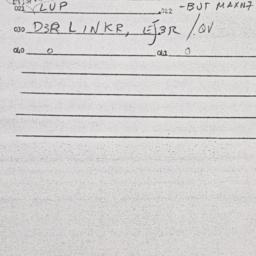 021 LUP 022 -BUT MAXN7
030 D3R LINKR, EJ3R /.OV
040 0 041 0